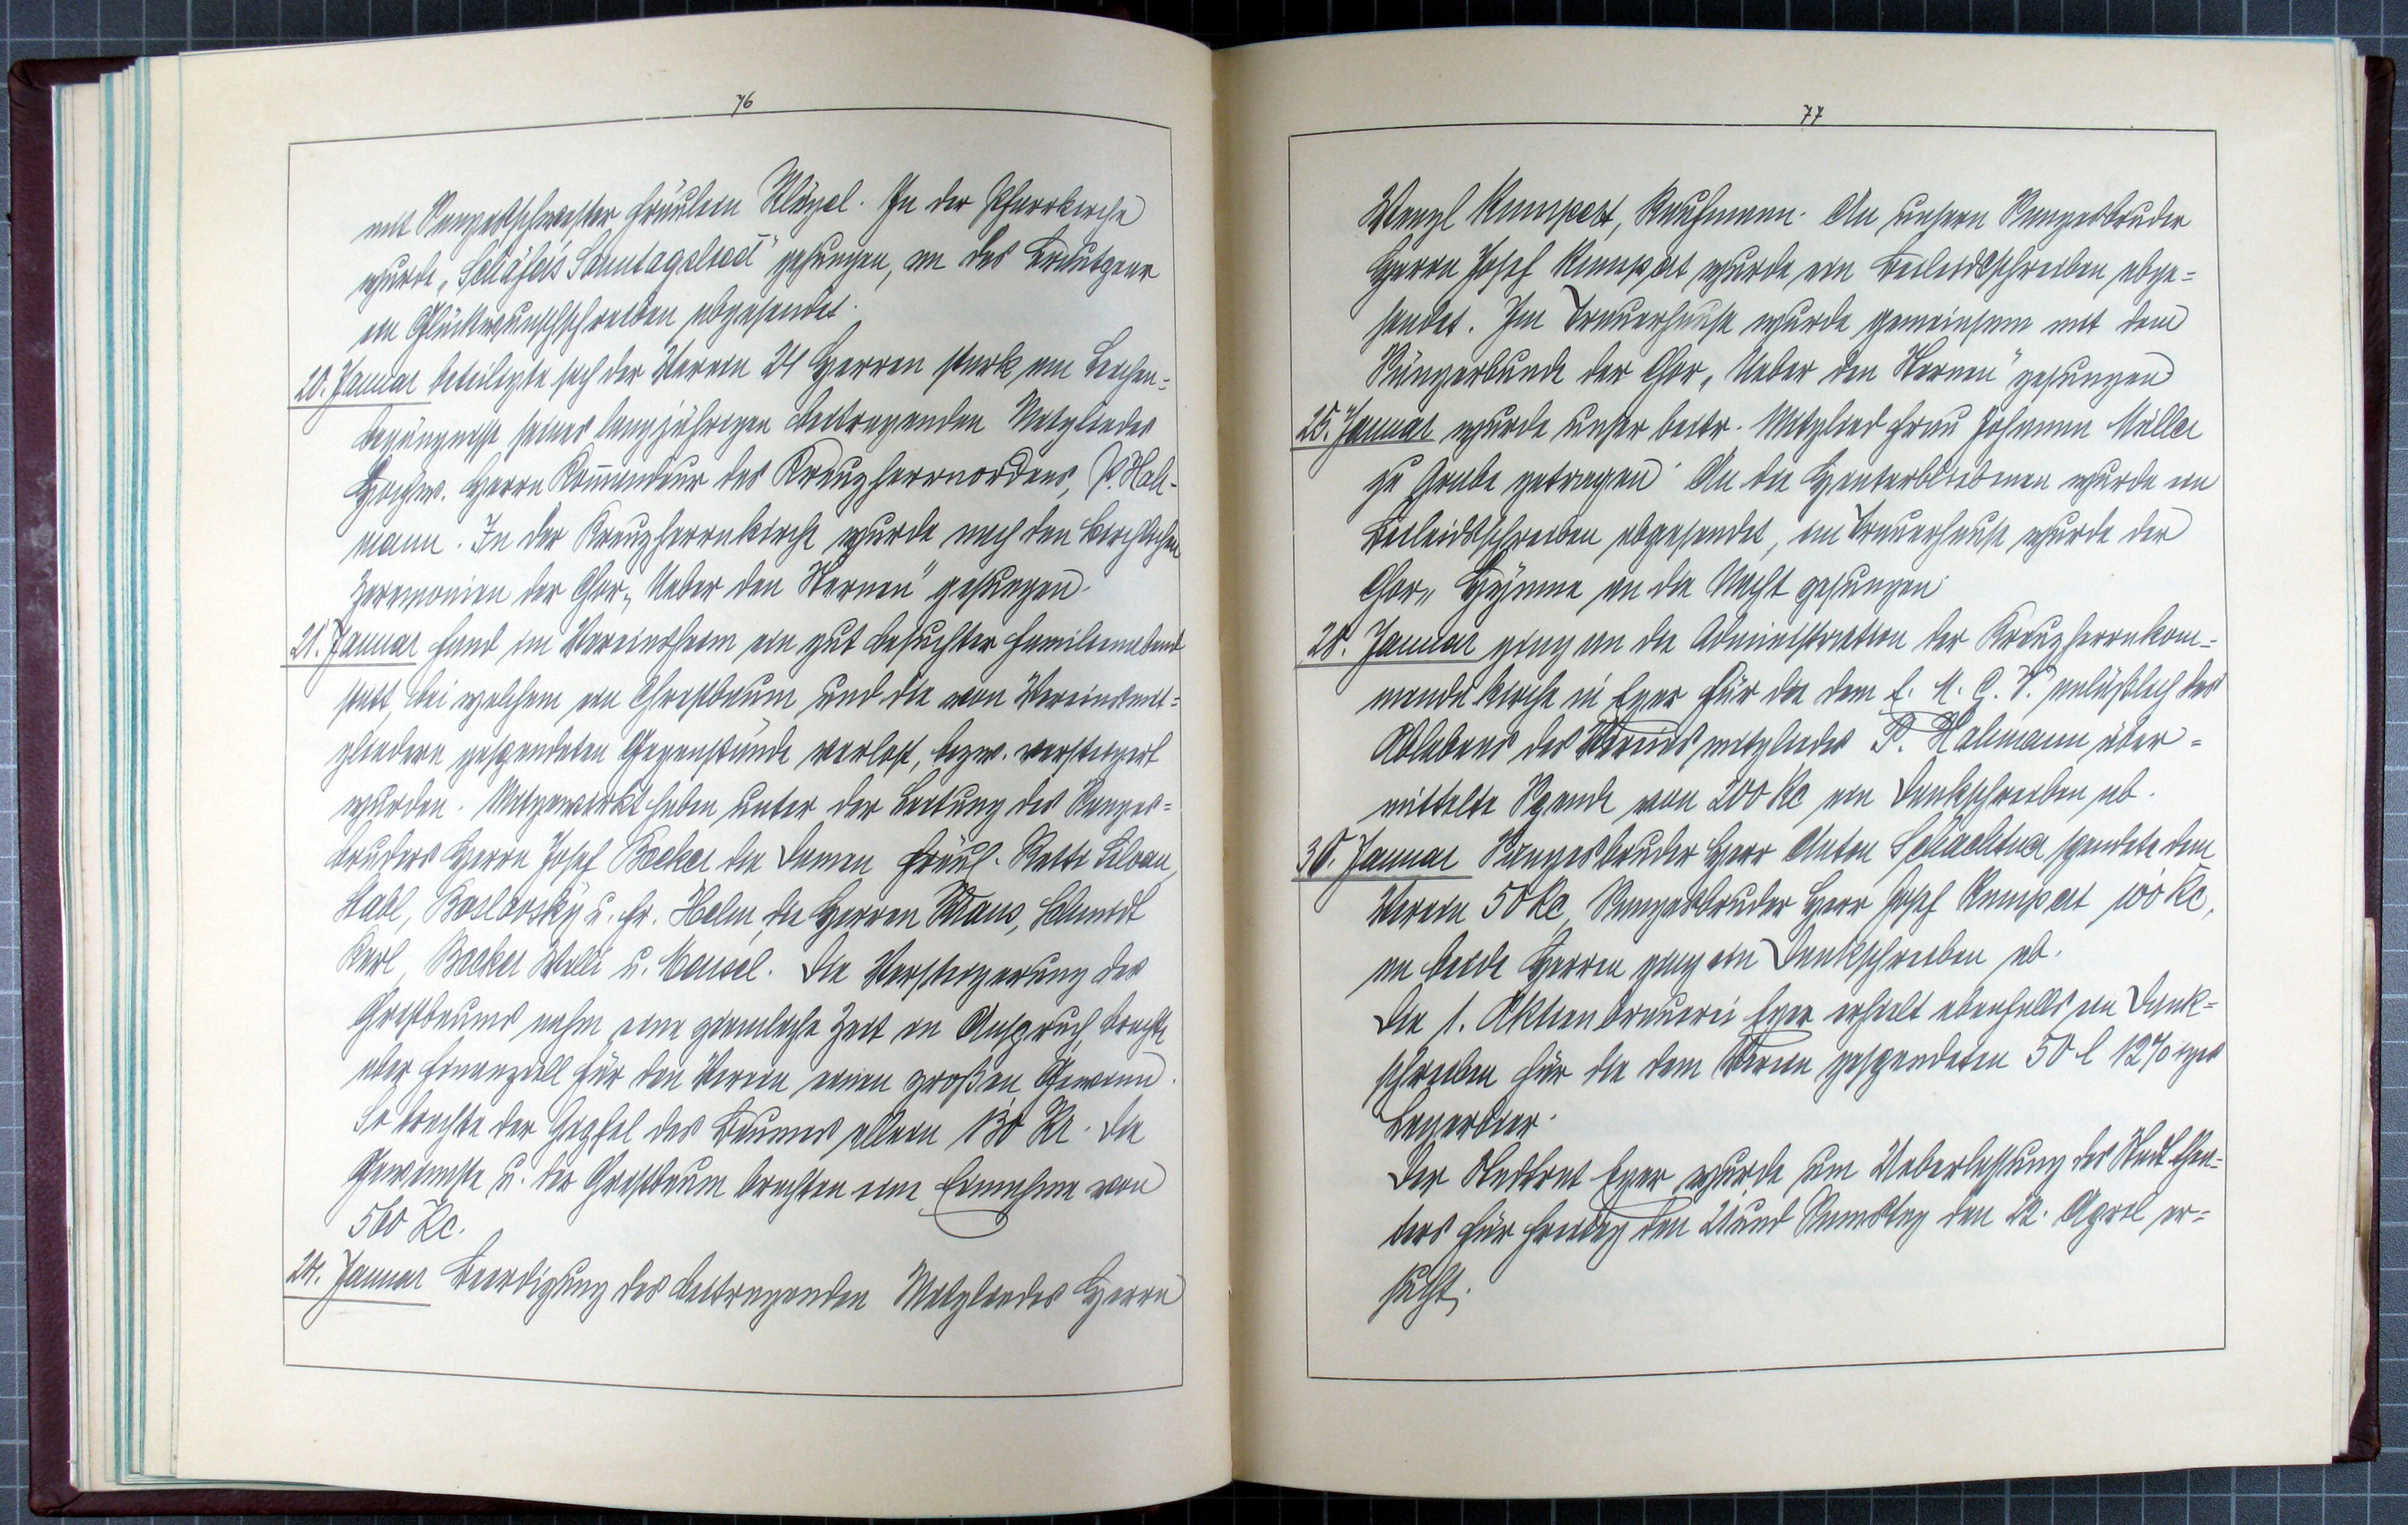 76
mit Sangesschwester Fräulein Klügel. In der Pfarrkirche
wurde „Schäfers Sonntagslied" gesungen, an das Brautpaar
ein Glückwunschschreiben abgesendet.
20. Januar beteiligte sich der Verein 24 Herren stark am Leichen=
begängnisse seines langjährigen beitragenden Mitgliedes
Hochw. Herrn Kom̄andeur des Kreuzherrnordens, P. Hah-
mann. In der Kreuzherrnkirche wurde nach den kirchlichen
Zeremonien der Chor „Ueber den Sternen" gesungen.
21. Januar fand im Vereinsheim ein gut besuchter Familienabend
statt, bei welchem ein Christbaum und die von Vereinsmit=
gliedern gespendeten Gegenstände verlost, bezw. versteigert
wurden. Mitgewirkt haben unter der Leitung des Sanges=
bruders Herrn Josef Becker die Damen Fräul. Netti
Stabl, u. Fr. Holm, die Herren Schmidt
Karl, Becker Willi u. Meusel. Die Versteigerung des
Christbaums nahm eine ziemliche Zeit in Anspruch, brachte
aber finanziell für den Verein einen großen Gewinn.
So brachte der Gipfel des Baumes allein 130 Kc. Die
Gewinnste u. der Christbaum brachten eine Einnahme von
560 Kc.
24. Januar Beerdigung des beitragenden Mitgliedes Herrn
77
Wenzl Rumpert, Kaufmann. An unsern Sangesbruder
Herrn Josef Rumpert wurde ein Beileidsschreiben abge=
sendet. Im Trauerhause wurde gemeinsam mit dem
Sängerbunde der Chor „Ueber den Sternen" gesungen
25. Januar wurde unser beitr. Mitglied Frau Johanna Müller
zu Grabe getragen. An die Hinterbliebenen wurde ein
Beileidsschreiben abgesendet, im Trauerhause wurde der
Chor „Hymne an die Nacht gesungen.
28. Januar ging an die Administration der Kreuzherrnkom=
mende kirche in Eger für die dem E. M. G. V. anläßlich des
Ablebens des Vereinsmitgliedes P. Hahmann über=
mittelte Spende von 200 Kc ein Dankschreiben ab.
30. Januar Sangesbruder Herr Anton Schachtner spendete dem
Verein 50 Kc, Sangesbruder Herr Josef Rumpert 100 Kc,
an beide Herren ging ein Dankschreiben ab.
Die 1. Aktienbrauerei Eger erhielt ebenfalls ein Dank=
schreiben für die dem Verein gespendeten 50 l 12%iges
Lagerbier.
Der Stadtrat Eger wurde um Ueberlassung des Stadtthea=
ters für Freitag den 21. und Samstag den 22. April er=
sucht.